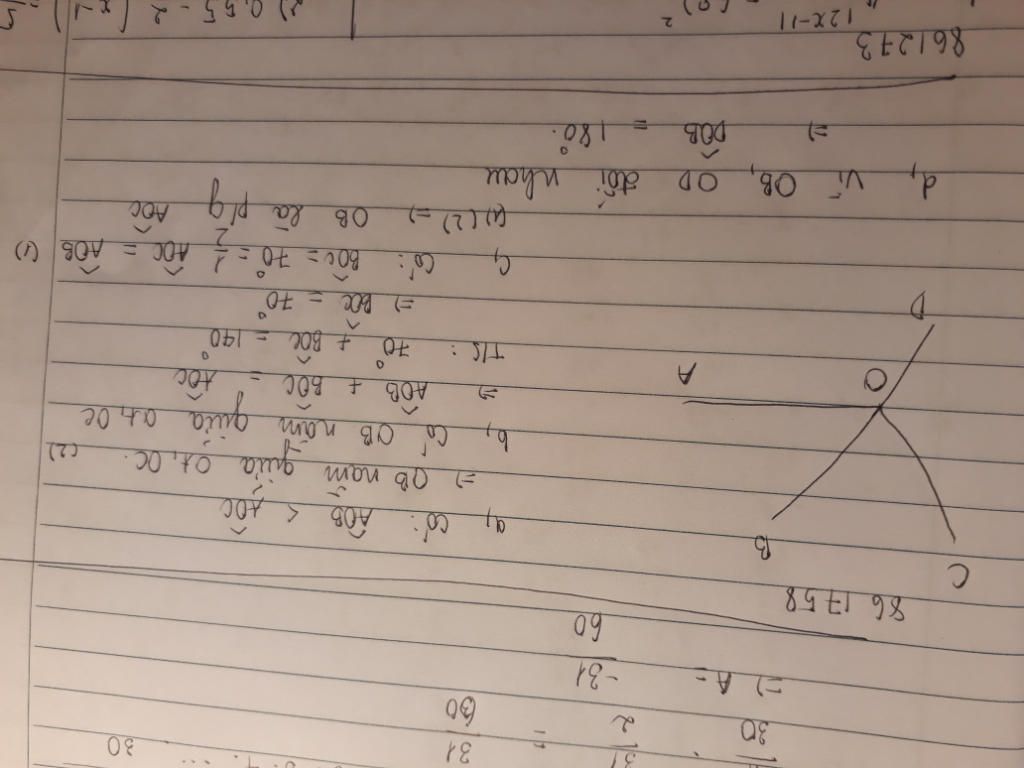 30
31
2
=
31
60
=) A =
-31
60
861758
C
B
A
O
D
a, có: AÔB < AÔC
=) OB nằm giữa OA, OC. (2)
b, có OB nằm giữa OA, OC
=) AÔB + BÔC = AÔC
T/S: 70° + BÔC = 140°
=) BÔC = 70°
c, Có: BÔC = 70° = 1/2 AÔC = AÔB (1)
(1)(2) =) OB là p/g AÔC
d, Vì OB, OD đối nhau
=) DÔB = 180°.
861273
12x-11
2) 0,55 - 2
x-1